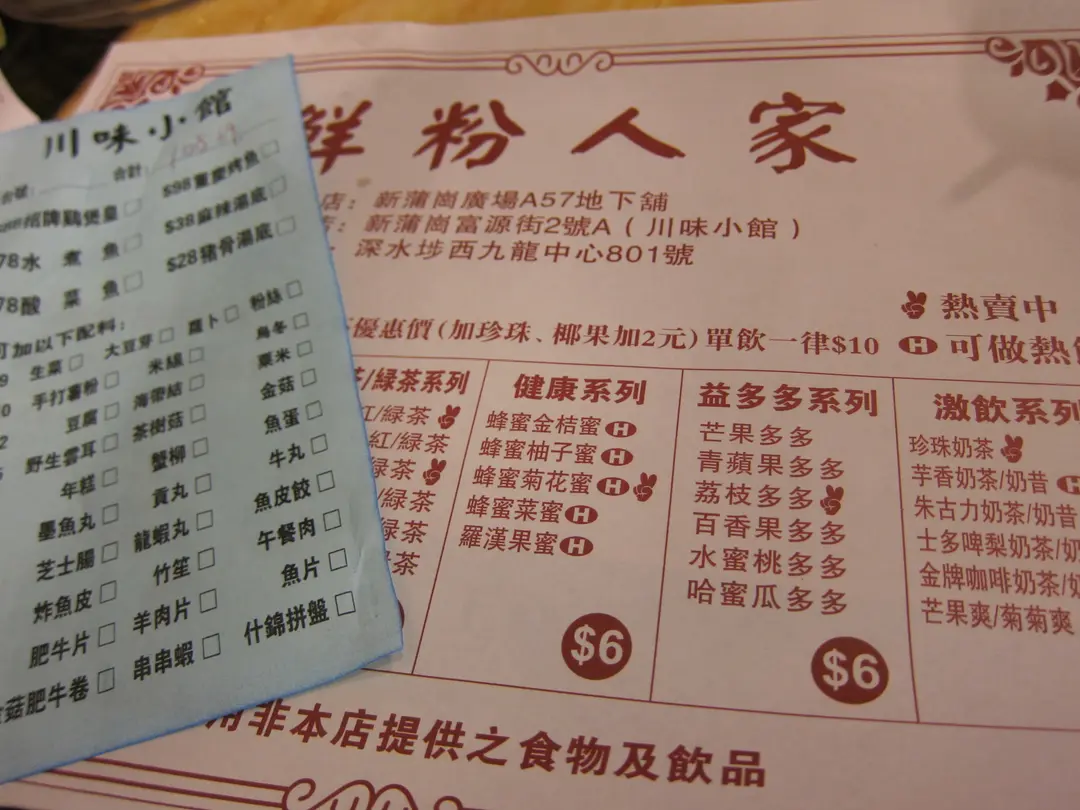 川味·小·館
合計:
招牌鷄煲皇 □
$98重慶烤魚 □
78水 煮 魚 □
$38麻辣湯底 □
78酸 菜 魚 □
$28豬骨湯底 □
可加以下配料:
生菜 □ 大豆芽 □ 蘿卜 □ 粉絲 □
手打薯粉 □ 米線 □ 烏冬 □
豆腐 □ 海帶結 □ 粟米 □
野生雲耳 □ 茶樹菇 □ 金菇 □
年糕 □ 蟹柳 □ 魚蛋 □
墨魚丸 □ 貢丸 □ 牛丸 □
芝士腸 □ 龍蝦丸 □ 魚皮餃 □
炸魚皮 □ 竹笙 □ 午餐肉 □
肥牛片 □ 羊肉片 □ 魚片 □
菇肥牛卷 □ 串串蝦 □ 什錦拼盤 □
鮮粉人家
店: 新蒲崗廣場A57地下舖
: 新蒲崗富源街2號A(川味小館)
深水埗西九龍中心801號
熱賣中
優惠價(加珍珠、椰果加2元)單飲一律$10
H 可做熱飲
/綠茶系列
紅/綠茶
紅/綠茶
綠茶
/綠茶
綠茶
茶
健康系列
蜂蜜金桔蜜 H
蜂蜜柚子蜜 H
蜂蜜菊花蜜 H
蜂蜜菜蜜 H
羅漢果蜜 H
$6
益多多系列
芒果多多
青蘋果多多
荔枝多多
百香果多多
水蜜桃多多
哈蜜瓜多多
$6
激飲系列
珍珠奶茶
芋香奶茶/奶昔 H
朱古力奶茶/奶昔
士多啤梨奶茶/奶
金牌咖啡奶茶/奶
芒果爽/菊菊爽
用非本店提供之食物及飲品